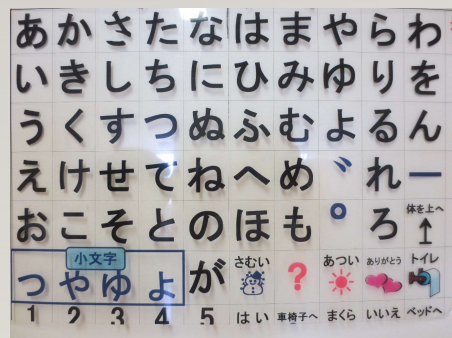 あかさたなはまやらわ
いきしちにひみゆりを
うくすつぬふむよるん
えけせてねへめ゛れー
おこそとのほも゜ろ 体を上へ
小文字
つやゆょ が さむい ? あつい ありがとう トイレ
1 2 3 4 5 はい 車椅子へ まくら いいえ ベッドへ